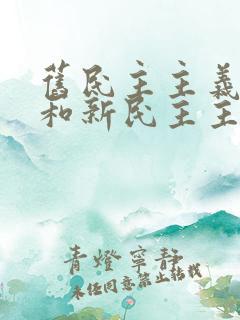 舊民主主義
和新民主主
青燈寧靜
未經同意禁止轉載